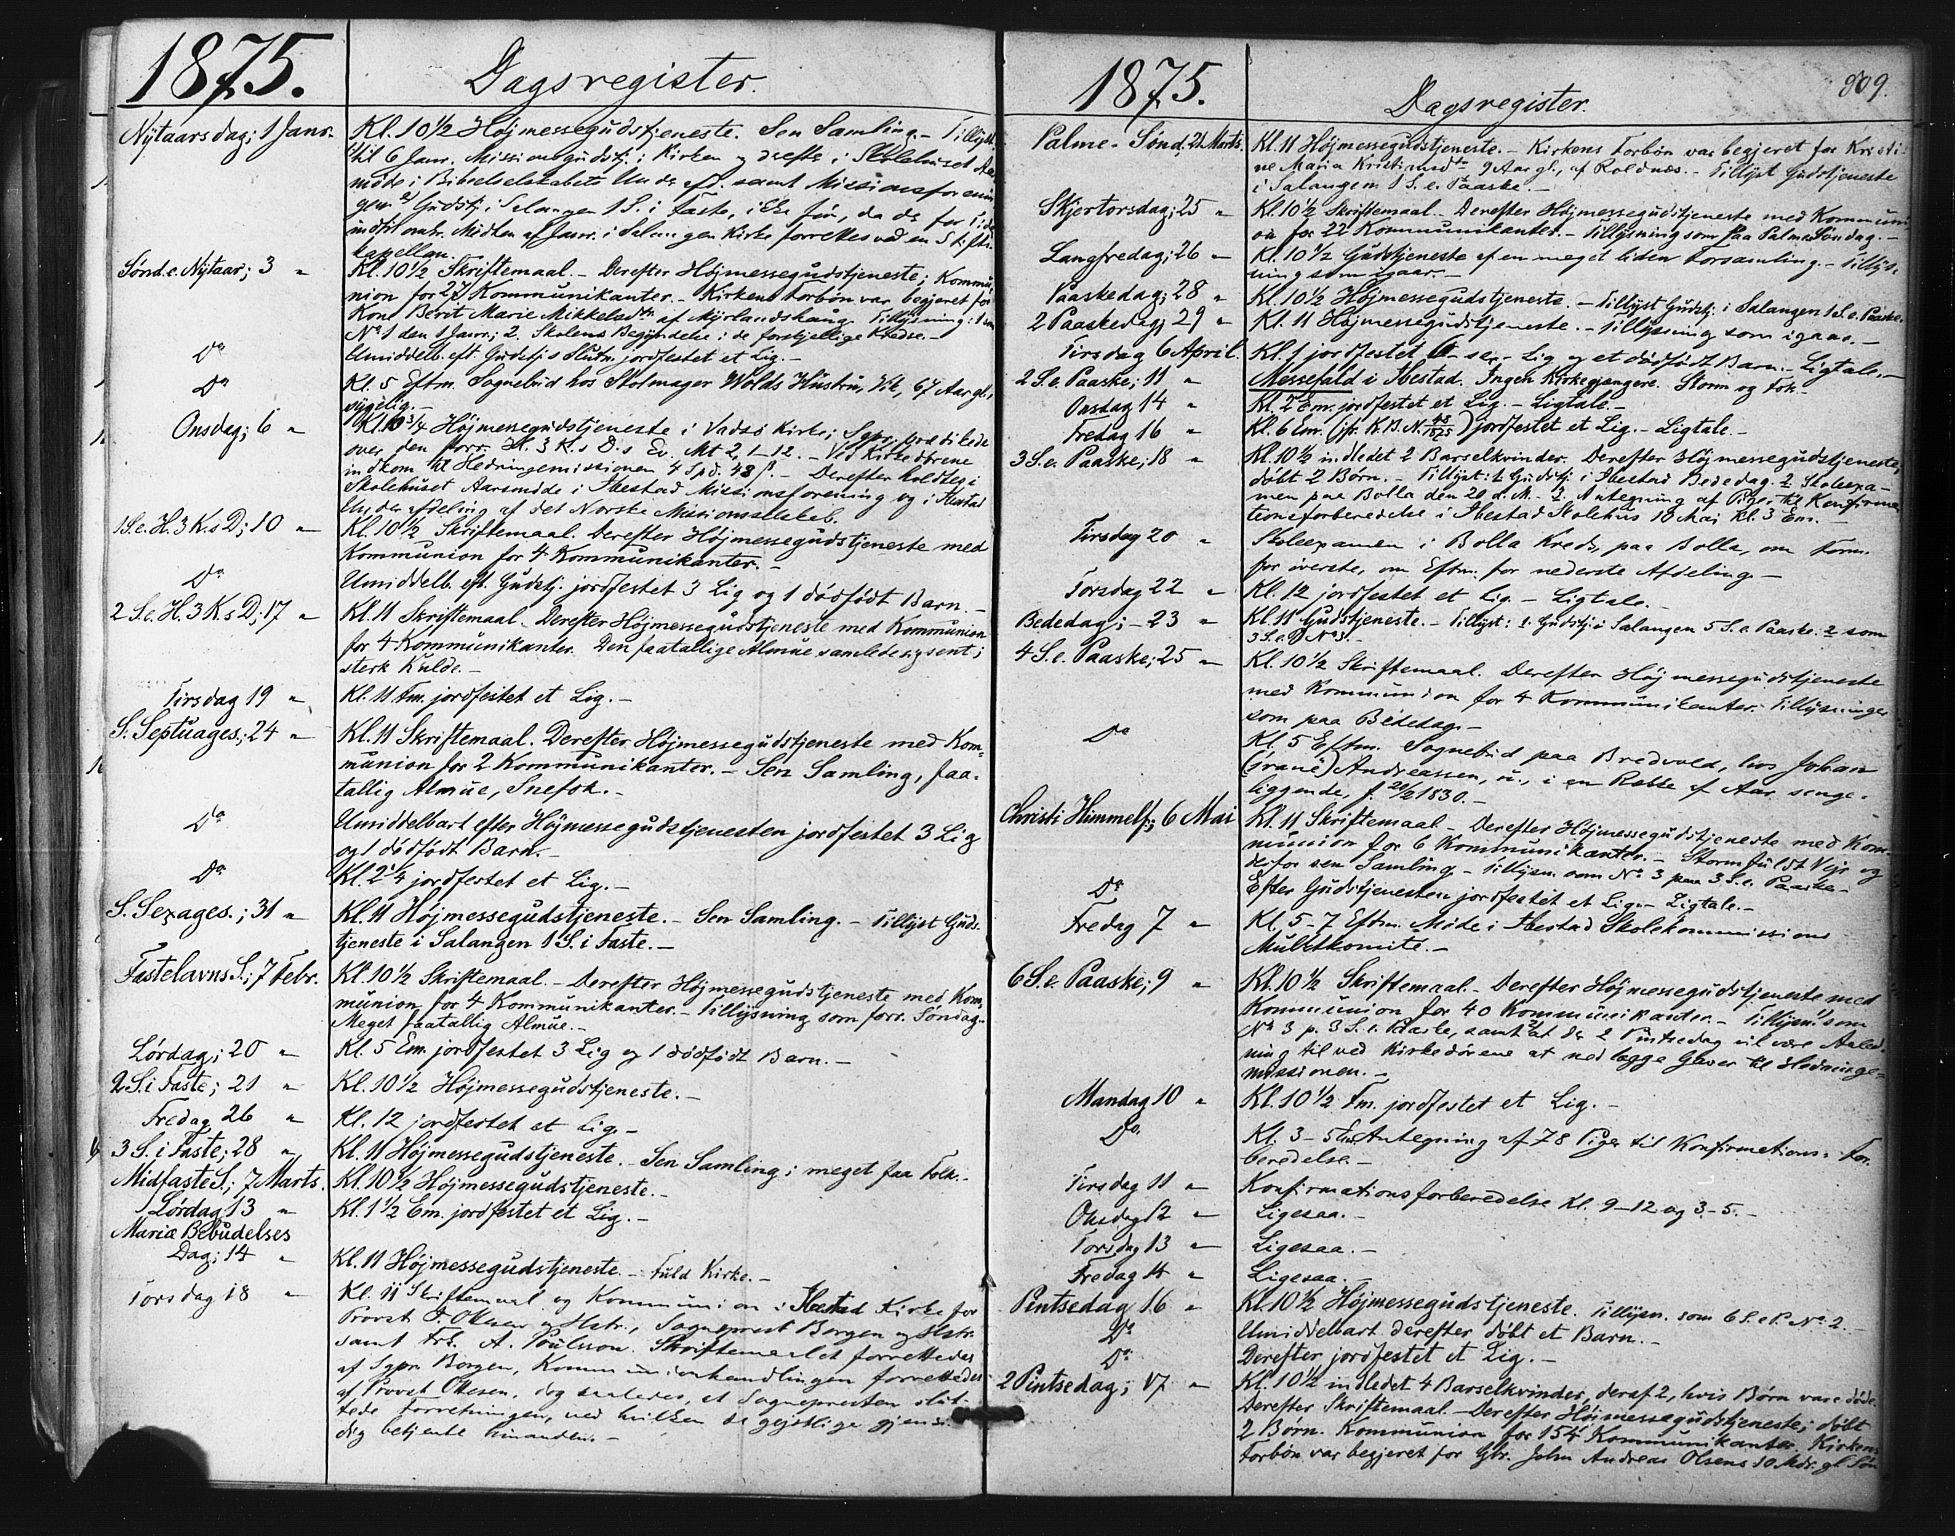 1875.
Dagsregister.
Nytaarsdag; 1 Janr.
Kl. 10½ Højmessegudstjeneste. Sen Samling. – Tillyst:
til 6 Janr. Missionsgudstj. i Kirken og derefter i Skolehuset Aars-
møde i Bibelselskabets Underafd. samt Missionsforenin-
gen. 2) Gudstj. i Salangen 1 S. i Faste, ikke før, da de for Tiden
indtil omtr. Midten af Janr. i Salangen Kirke forrettes ved en Stifts-
kapellan. –
Sønd. e. Nytaar; 3 "
Kl. 10½ Skriftemaal. – Derefter Højmessegudstjeneste; Kommu-
nion for 27 Kommunikanter. – Kirkens Forbøn var begjeret for
Kone Berit Marie Mikkelsdtr. af Myrlandshaug. Tillysning: 1 som
No 1 den 1 Janr.; 2. Skolens Begyndelse i de forskjellige Kredse. –
Do
Umiddelb. eft. Gudstj.s Slutn. jordfestet et Lig. –
Do
Kl. 5 Eftm. Sognebud hos Stolmager Wolds Hustru, Vik, 67 Aar gl.,
sygelig. –
Onsdag; 6 "
Kl. 10¾ Højmessegudstjeneste i Vadsø Kirke; Sgpr. prædikede
over den forr. H. 3 K.s D.s Ev. Mt 2, 1–12. – Ved Kirkedørene
indkom til Hedningemissionen 4 Spd. 48 ß. – Derefter holdtes i
Skolehuset Aarsmøde i Ibestad Missionsforening og i Ibestad
Underafdeling af det Norske Missionsselskab.
1 S. e. H. 3 K.s D; 10 "
Kl. 10½ Skriftemaal. Derefter Højmessegudstjeneste med
Kommunion for 4 Kommunikanter. –
Do
Umiddelb. eft. Gudstj. jordfestet 3 Lig og 1 dødfødt Barn. –
2 S. e. H. 3 K.s D; 17 "
Kl. 11 Skriftemaal. Derefter Højmessegudstjeneste med Kommunion
for 4 Kommunikanter. Den faatallige Almue samlede sig sent;
sterk Kulde. –
Tirsdag 19 "
Kl. 11 Fm. jordfestet et Lig. –
S. Septuages.; 24 "
Kl. 11 Skriftemaal. Derefter Højmessegudstjeneste med Kom-
munion for 2 Kommunikanter. – Sen Samling, faa-
tallig Almue, Snefok. –
Do
Umiddelbart efter Højmessegudstjenesten jordfestet 3 Lig
og 1 dødfødt Barn. –
Do
Kl. 2¼ jordfestet et Lig. –
S. Sexages.; 31 "
Kl. 11 Højmessegudstjeneste. – Sen Samling. – Tillyst Guds-
tjeneste i Salangen 1 S. i Faste. –
Fastelavns S.; 7 Febr.
Kl. 10½ Skriftemaal. – Derefter Højmessegudstjeneste med Kom-
munion for 4 Kommunikanter. – Tillysning som forr. Søndag. –
Meget faatallig Almue. –
Lørdag; 20 "
Kl. 5 Em. jordfestet 3 Lig og 1 dødfødt Barn. –
2 S. i Faste; 21 "
Kl. 10½ Højmessegudstjeneste. –
Fredag 26 "
Kl. 12 jordfestet et Lig. –
3 S. i Faste; 28 "
Kl. 11 Højmessegudstjeneste. – Sen Samling; meget faa Folk. –
Midfaste S; 7 Marts.
Kl. 10½ Højmessegudstjeneste. –
Lørdag 13 "
Kl. 1½ Em. jordfestet et Lig. –
Mariæ Bebudelses
Dag; 14 "
Kl. 11 Højmessegudstjeneste. – Fuld Kirke. –
Torsdag 18 "
Kl. 11 Skriftemaal og Kommunion i Ibestad Kirke for
Provst Ottesen og Hstr., Sogneprest Borgen og Hstr.
samt Frk. A. Poulsson. Skriftemaalet forrettedes
af Sgpr. Borgen, Kommunionhandlingen forrettedes
af Provst Ottesen, dog saaledes, at Sognepresten slut-
tede Forretningen, ved hvilken de gejstlige gjensi-
dig betjente hinanden. –
1875.
Dagsregister.
309.
Palme-Sønd. 21 Marts.
Kl. 11 Højmessegudstjeneste. – Kirkens Forbøn var begjeret for Kristi-
ne Maria Kristiansdtr. 9 Aar gl., af Roldnæs. – Tillyst Gudstjeneste
i Salangen 1 S. e. Paaske. –
Skjertorsdag; 25 "
Kl. 10½ Skriftemaal. – Derefter Højmessegudstjeneste med Kommuni-
on for 22 Kommunikanter. – Tillysning som paa Palme Søndag. –
Langfredag; 26 "
Kl. 10½ Gudstjeneste af en meget liden Forsamling. – Tillys-
ning som igaar. –
Paaskedag; 28 "
Kl. 10½ Højmessegudstjeneste. – Tillyst Gudstj. i Salangen 1 S. e. Paaske.
2 Paaskedag; 29 "
Kl. 11 Højmessegudstjeneste. – Tillysning som igaar. –
Tirsdag 6 April.
Kl. 1 jordfestet Lig og et dødfødt Barn. – Ligtale. –
2 S. e. Paaske; 11 "
Messefald i Ibestad. Ingen Kirkegjængere. Storm og Fok. –
Onsdag 14 "
Kl. 2 Em. jordfestet et Lig. – Ligtale. –
Fredag 16 "
Kl. 6 Em. (jfr. K.B. N. 48/1875) jordfestet et Lig. – Ligtale. –
3 S. e. Paaske; 18 "
Kl. 10½ indledet 2 Barselkvinder. Derefter Højmessegudstjeneste;
døbt 2 Børn. – Tillyst: 1. Gudstj. i Ibestad Bededag. 2. Skoleexa-
men paa Bolla den 20 d. M. – 3. Antegning af Piger til Konfirma-
tionsforberedelse i Ibestad Skolehus 10 Mai Kl. 3 Em. –
Tirsdag 20 "
Skoleexamen i Bolla Kreds, paa Bolla, om Form.
for øverste, om Eftm. for nederste Afdeling. –
Torsdag 22 "
Kl. 12 jordfestet et Lig. – Ligtale. –
Bededag; – 23 "
Kl. 11 Gudstjeneste. – Tillyst: 1. Gudstj. i Salangen 5 S. e. Paaske. 2 som
3 S. e. P. No 3. –
4 S. e. Paaske; 25 "
Kl. 10½ Skriftemaal. Derefter Højmessegudstjeneste
med Kommunion for 4 Kommunikanter. Tillysninger
som paa Bededag. –
Do
Kl. 5 Eftm. Sognebud paa Bredvold, hos Johan
Andreassen, u., i en Række af Aar senge-
liggende, f. 20/2 1830. –
Christi Himmelf.; 6 Mai
Kl. 11 Skriftemaal. – Derefter Højmessegudstjeneste med Kom-
munion for 6 Kommunikanter. – Stormfuldt Vejr og
derfor sen Samling. – Tillysn. som No 3 paa 3 S. e. Paaske. –
Do
Efter Gudstjenesten jordfestet et Lig. – Ligtale. –
Fredag 7 "
Kl. 5–7 Eftm. Møde i Ibestad Skolekommissions
Mulktkomite. –
6 S. e. Paaske; 9 "
Kl. 10½ Skriftemaal. – Derefter Højmessegudstjeneste med
Kommunion for 40 Kommunikanter. – Tillysn. 1) som
No 3 p. 3 S. e. Paaske, samt 2) at der 2 Pintsedag vil være Anled-
ning til ved Kirkedørene at nedlægge Gaver til Hedninge-
missionen. –
Mandag 10 "
Kl. 10½ Fm. jordfestet et Lig. –
Do
Kl. 3–5 Em. Antegning af 78 Piger til Konfirmations-For-
beredelse. –
Tirsdag 11 "
Konfirmationsforberedelse Kl. 9–12 og 3–5. –
Onsdag 12 "
Ligesaa. –
Torsdag 13 "
Ligesaa. –
Fredag 14 "
Ligesaa. –
Pintsedag 16 "
Kl. 10½ Højmessegudstjeneste. Tillysn. som 6 S. e. P. No 2. –
Do
Umiddelbart derefter døbt et Barn. –
Do
Derefter jordfestet et Lig. –
2 Pintsedag; 17 "
Kl. 10½ indledet 4 Barselkvinder, deraf 2, hvis Børn vare døde.
Derefter Skriftemaal. – Derefter Højmessegudstjeneste; døbt
2 Børn. Kommunion for 154 Kommunikanter. Kirkens
Forbøn var begjeret for Gbr. John Andreas Olsens 10 Mdr. gl. Søn